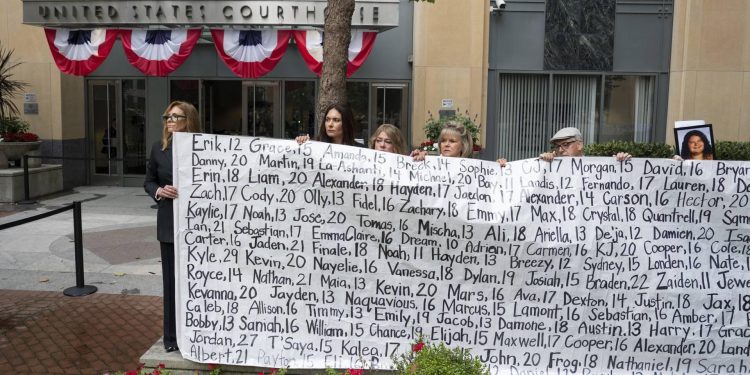 UNITED STATES COURTHOUSE
Erik, 12 Grace, 15 Amanda, 15 14 Sophie, 13 CJ, 17 Morgan, 15 David, 16 Bryan
Danny, 20 Martin, 14 La-Ashanti, 14 Michael, 20 Bay, 11 Landis, 12 Fernando, 17 Lauren, 18
Erin, 18 Liam, 20 Alexander, 18 Hayden, 17 Jaedon, 17 Alexander, 14 Carson, 16 Hector, 20
Zach, 17 Cody, 20 Olly, 13 Fidel, 16 Zachary, 18 Emmy, 17 Max, 18 Crystal, 18 Quantrell, 19
Kaylie, 17 Noah, 13 Jose, 20 Tomas, 16 Mischa, 13 Ali, 18 Ariella, 13 De'ja, 12 Damien, 20
Ian, 21 Sebastian, 17 EmmaClaire, 16 Dream, 10 Adrien, 17 Carmen, 16 KJ, 20 Cooper, 16 Cole, 18
Carter, 16 Jaden, 21 Finale, 18 Noah, 11 Hayden, 13 Breezy, 12 Sydney, 15 Londen, 16 Nate,
Kyle, 29 Kevin, 20 Nayelie, 16 Vanessa, 18 Dylan, 19 Josiah, 15 Braden, 22 Zaiden, 11
Royce, 14 Nathan, 21 Maia, 13 Kevin, 20 Mars, 16 Ava, 17 Dexton, 14 Justin, 18 Jax, 18
Kevanna, 20 Jayden, 13 Naquavious, 16 Marcus, 15 Lamont, 16 Sebastian, 16 Amber, 17
Caleb, 18 Allison, 16 Timmy, 13 Emily, 19 Jacob, 13 Damone, 18 Austin, 13 Harry, 17
Bobby, 13 Saniah, 16 William, 15 Chance, 19 Elijah, 15 Maxwell, 17 Cooper, 16 Alexander, 20
Jordan, 27 T'Saya, 15 Kalea, 15 John, 20 Frog, 18 Nathaniel, 19
Albert, 21 Payton, 15 Eli